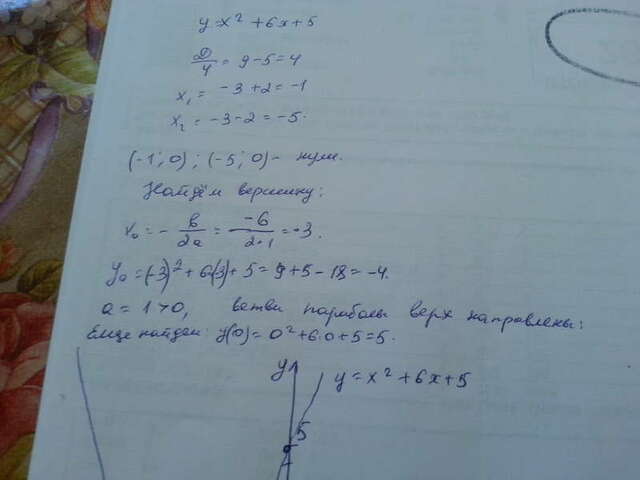 y=x² + 6x + 5
D/4 = 9-5=4
x₁ = -3+2=-1
x₂ = -3-2=-5.
(-1; 0); (-5; 0)- нули.
Найдём вершину:
x₀ = - в/2a = -6/2·1 = -3.
y₀ = (-3)² + 6(-3) + 5 = 9+5-18=-4.
a = 1 > 0, ветви параболы верх направлены:
Еще найдем: y(0)= 0²+6·0+5=5.
y
y = x² + 6x + 5
5